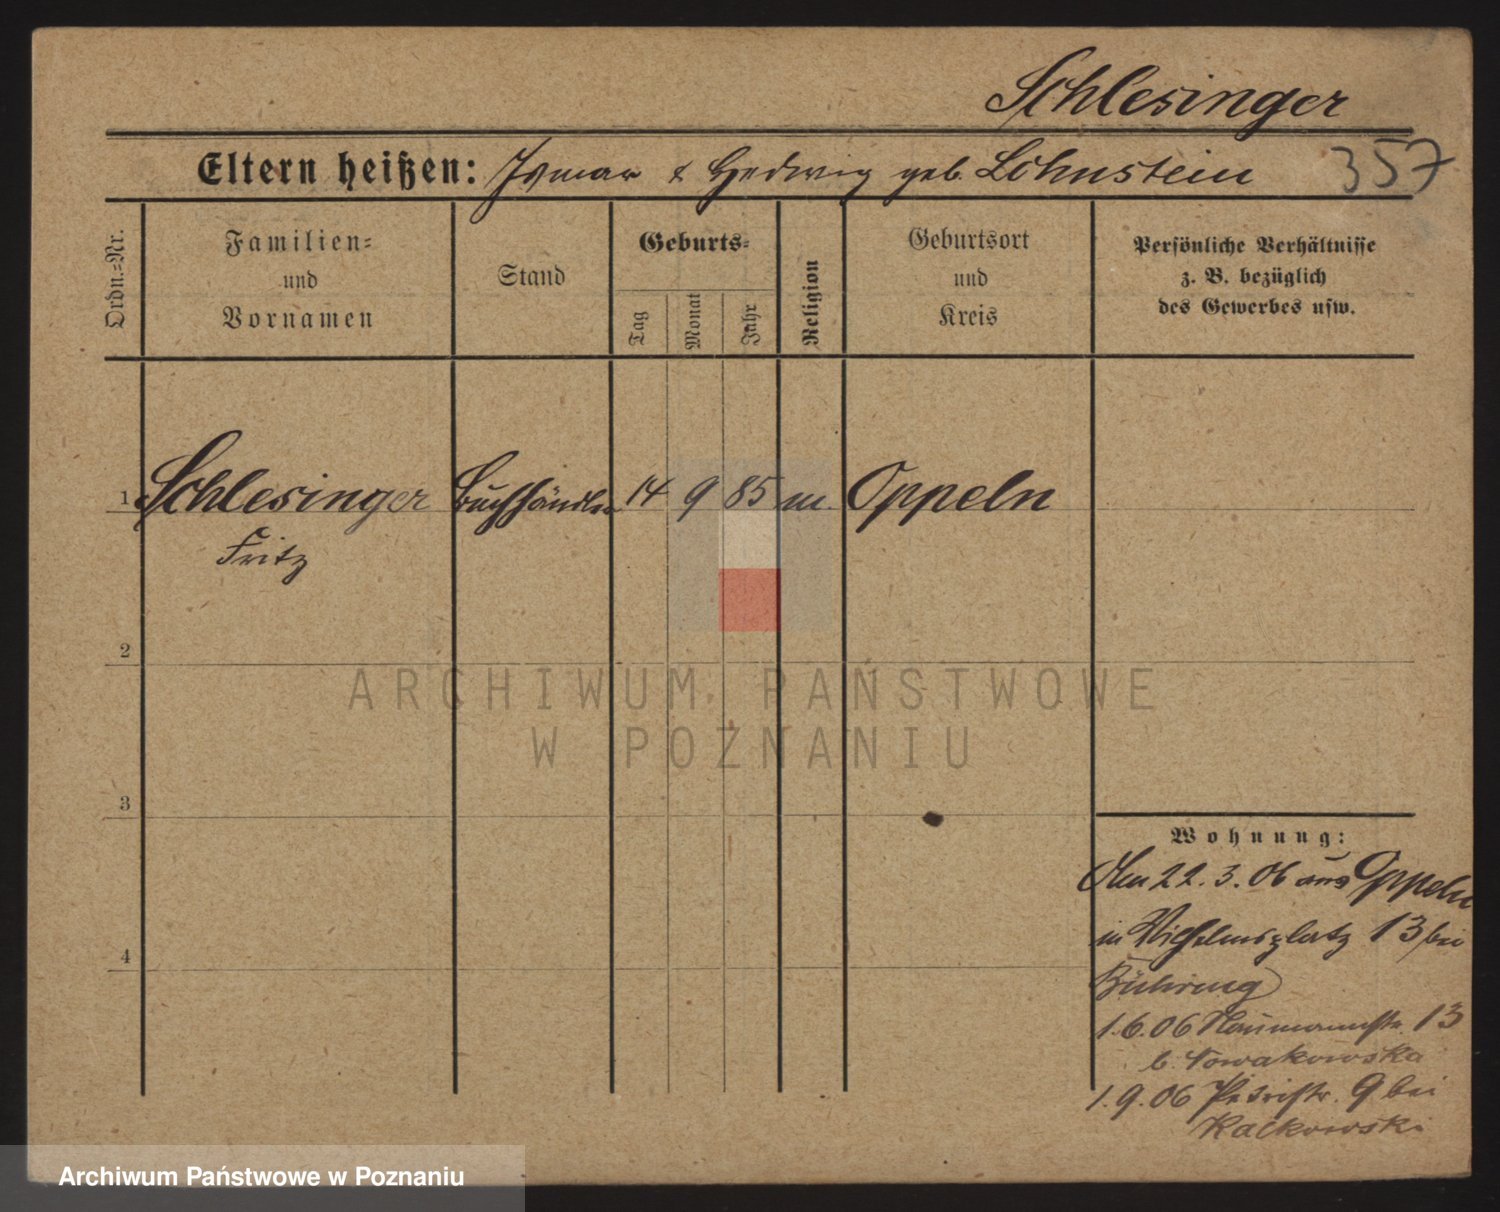 Schlesinger
Eltern heißen: Ismar & Hedwig geb. Lohnstein 357
Ordn.-Nr.
Familien-
und
Vornamen
Stand
Geburts-
Tag
Monat
Jahr
Religion
Geburtsort
und
Kreis
Persönliche Verhältnisse
z. B. bezüglich
des Gewerbes usw.
1 Schlesinger Buchhändler 14 9 85 m. Oppeln
Fritz
2
ARCHIWUM PAŃSTWOWE
W POZNANIU
3
Wohnung:
22.3.06 aus Oppeln
in Wilhelmsplatz 13 bei
Bühring
4
1.6.06 Naumannstr. 13
b. Nowakowska
1.9.06 Petristr. 9 bei
Kaczkowski
Archiwum Państwowe w Poznaniu